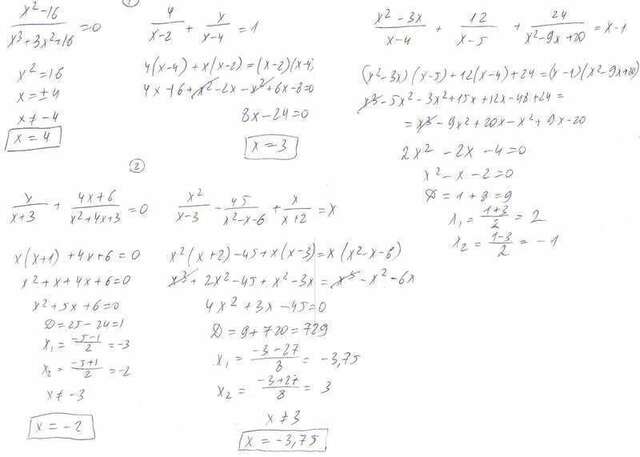 ①
x²-16 / x³+3x²+16 = 0
x² = 16
x = ±4
x ≠ -4
x = 4
4 / x-2 + x / x-4 = 1
4(x-4) + x(x-2) = (x-2)(x-4)
4x-16+x²-2x-x²+6x-8=0
8x-24=0
x = 3
x²-3x / x-4 + 12 / x-5 + 24 / x²-9x+20 = x-1
(x²-3x)(x-5)+12(x-4)+24=(x-1)(x²-9x+20)
x³-5x²-3x²+15x+12x-48+24=
= x³-9x²+20x-x²+9x-20
2x²-2x-4=0
x²-x-2=0
D=1+8=9
x₁ = 1+3 / 2 = 2
x₂ = 1-3 / 2 = -1
②
x / x+3 + 4x+6 / x²+4x+3 = 0
x(x+1)+4x+6=0
x²+x+4x+6=0
x²+5x+6=0
D=25-24=1
x₁ = -5-1 / 2 = -3
x₂ = -5+1 / 2 = -2
x ≠ -3
x = -2
x² / x-3 - 45 / x²-x-6 + x / x+2 = x
x²(x+2)-45+x(x-3)=x(x²-x-6)
x³+2x²-45+x²-3x=x³-x²-6x
4x²+3x-45=0
D=9+720=729
x₁ = -3-27 / 8 = -3,75
x₂ = -3+27 / 8 = 3
x ≠ 3
x = -3,75